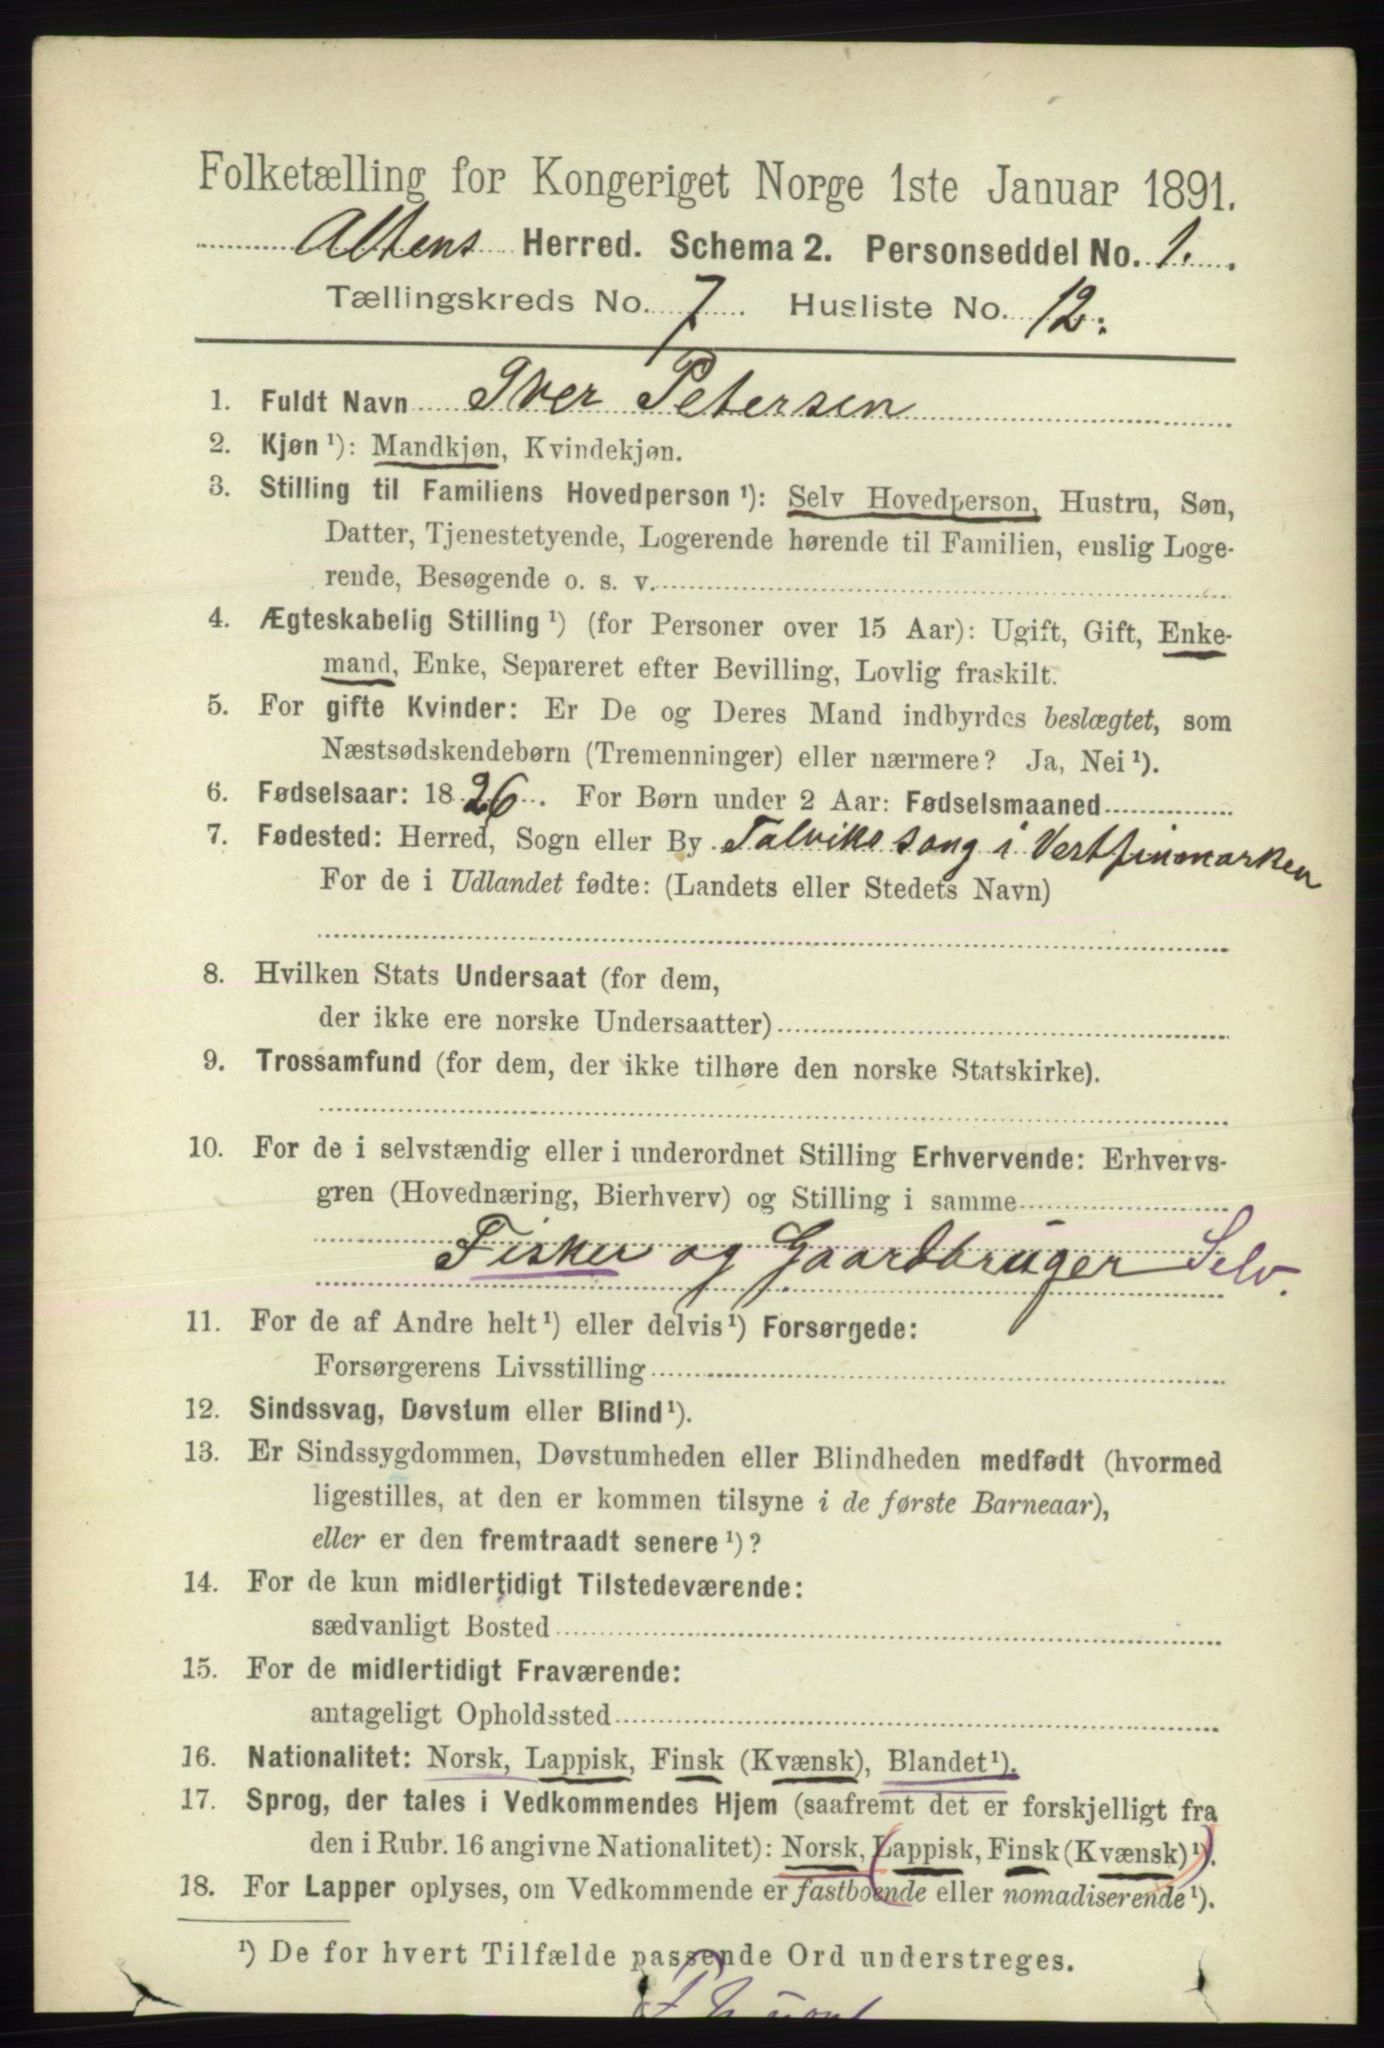 Folketælling for Kongeriget Norge 1ste Januar 1891.
Altens Herred. Schema 2. Personseddel No. 1.
Tællingskreds No. 7 Husliste No. 12.
1. Fuldt Navn Iver Petersen
2. Kjøn ¹): Mandkjøn, Kvindekjøn.
3. Stilling til Familiens Hovedperson ¹): Selv Hovedperson, Hustru, Søn,
Datter, Tjenestetyende, Logerende hørende til Familien, enslig Loge-
rende, Besøgende o. s. v.
4. Ægteskabelig Stilling ¹) (for Personer over 15 Aar): Ugift, Gift, Enke-
mand, Enke, Separeret efter Bevilling, Lovlig fraskilt.
5. For gifte Kvinder: Er De og Deres Mand indbyrdes beslægtet, som
Næstsødskendebørn (Tremenninger) eller nærmere? Ja, Nei ¹).
6. Fødselsaar: 1826. For Børn under 2 Aar: Fødselsmaaned
7. Fødested: Herred, Sogn eller By Talviks song i Vestfinmarken
For de i Udlandet fødte: (Landets eller Stedets Navn)
8. Hvilken Stats Undersaat (for dem,
der ikke ere norske Undersaatter)
9. Trossamfund (for dem, der ikke tilhøre den norske Statskirke).
10. For de i selvstændig eller i underordnet Stilling Erhvervende: Erhvervs-
gren (Hovednæring, Bierhverv) og Stilling i samme
Fisker og Gaardbruger Selv.
11. For de af Andre helt ¹) eller delvis ¹) Forsørgede:
Forsørgerens Livsstilling
12. Sindssvag, Døvstum eller Blind ¹).
13. Er Sindssygdommen, Døvstumheden eller Blindheden medfødt (hvormed
ligestilles, at den er kommen tilsyne i de første Barneaar),
eller er den fremtraadt senere ¹)?
14. For de kun midlertidigt Tilstedeværende:
sædvanligt Bosted
15. For de midlertidigt Fraværende:
antageligt Opholdssted
16. Nationalitet: Norsk, Lappisk, Finsk (Kvænsk), Blandet ¹).
17. Sprog, der tales i Vedkommendes Hjem (saafremt det er forskjelligt fra
den i Rubr. 16 angivne Nationalitet): Norsk, Lappisk, Finsk (Kvænsk) ¹).
18. For Lapper oplyses, om Vedkommende er fastboende eller nomadiserende ¹).
¹) De for hvert Tilfælde passende Ord understreges.